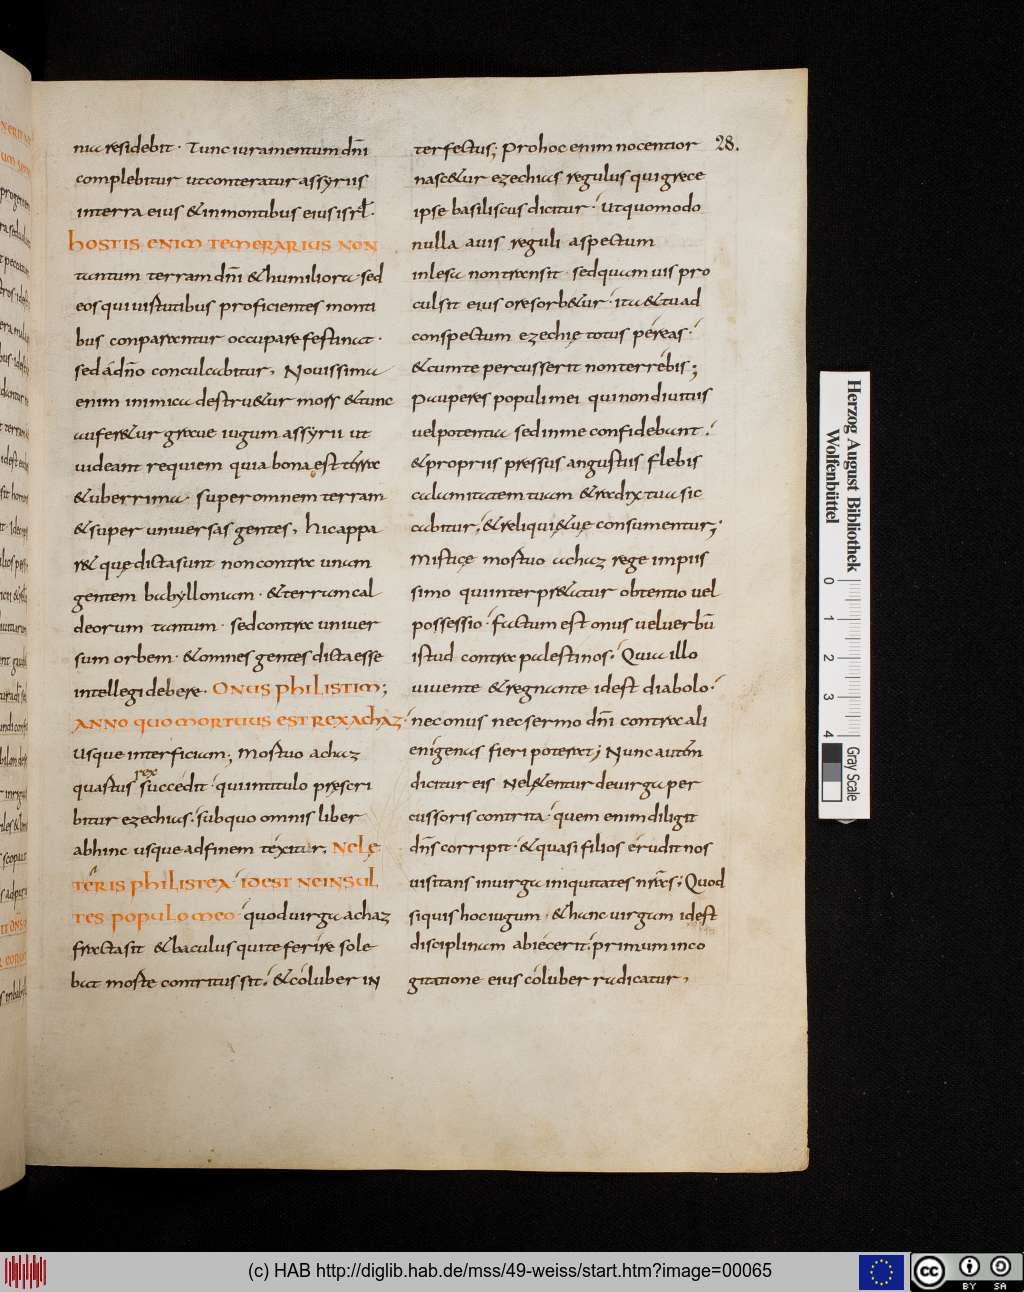 nia residebit · Tunc iuramentum dñi
complebitur ut conteratur assyriis
in terra eius & in montibus eius isrł ·
hostis enim temerarius non
tantum terram dñi & humiliora · sed
eos qui uirtutibus proficientes monti
bus conparantur occupare festinat ·
sed á dño conculcabitur, Nouissima
enim inimica destru&ur mors & tunc
aufer&ur graue iugum assyrii ut
uideant requiem quia bona est terra
& uberrima · super omnem terram
& super uniuersas gentes, hic appa
r& quę dicta sunt non contra unam
gentem babylloniam · & terram cal
deorum tantum · sed contra uniuer
sum orbem · & omnes gentes dicta esse
intellegi debere · Onus philistim;
anno quo mortuus est rex achaz
Usque interficiam; mortuo achaz
quartus rex succedit · qui in titulo prescri
bitur ezechias · sub quo omnis liber
abhinc usque ad finem texitur, Nele
teris philistea · idest ne insul
tes populo meo · quod uirga achaz
fracta sit & baculus qui te ferire sole
bat morte contritus sit · & coluber in
28.
terfectus; Pro hoc enim nocentior
nasc&ur ezechias regulus qui grece
ipse basiliscus dicitur · ut quomodo
nulla auis reguli aspectum
inlesa non transit · sed quamuis pro
cul sit eius ore sorb&ur · ita & tu ad
conspectum ezechię totus pereas ·
& cum te percusserit non terrebis;
Pauperes populi mei qui non diuitiis
uel potentia sed in me confidebant ·
& propriis pressus angustiis flebis
calamitatem tuam & radix tua sic
cabitur, & reliquię tuę consumentur;
Misticę mortuo achaz rege impiis
simo qui interpr&atur obtentio uel
possessio · factum est onus uel uerbū
istud contra palestinos · Quia illo
uiuente & regnante idest diabolo ·
nec onus nec sermo dñi contra ali
enigenas fieri poterat; Nunc autem
dicitur eis Nel&entur de uirga per
cussoris contrita · quem enim diligit
dñs corripit · & quasi filios erudit nos
uisitans in uirga iniquitates nras · Quod
si quis hoc iugum · & hanc uirgam idest
disciplinam abiecerit · primum in co
gitatione eius coluber radicatur,
Herzog August Bibliothek
Wolfenbüttel
0 1 2 3 4
Gray Scale
(c) HAB http://diglib.hab.de/mss/49-weiss/start.htm?image=00065
cc BY SA